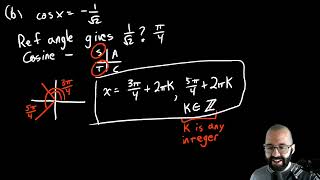 (b) cos x = -1/√2
Ref angle gives 1/√2? π/4
Cosine -
S A
T C
3π/4
5π/4
x = 3π/4 + 2πK, 5π/4 + 2πK
K ∈ ℤ
K is any
integer